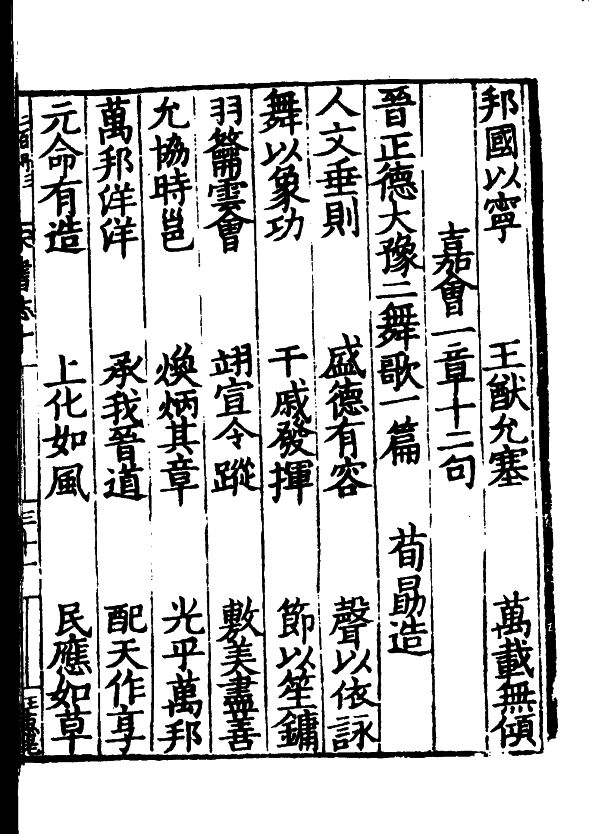 邦國以寧　王猷允塞　萬載無傾
嘉會一章十二句
晉正德大豫二舞歌一篇　荀勗造
人文垂則　盛德有容　聲以依詠
舞以象功　干戚發揮　節以笙鏞
羽籥雲會　翊宣令蹤　敷美盡善
允協時邕　煥炳其章　光乎萬邦
萬邦洋洋　承我晉道　配天作享
元命有造　上化如風　民應如草
書志十
三十一